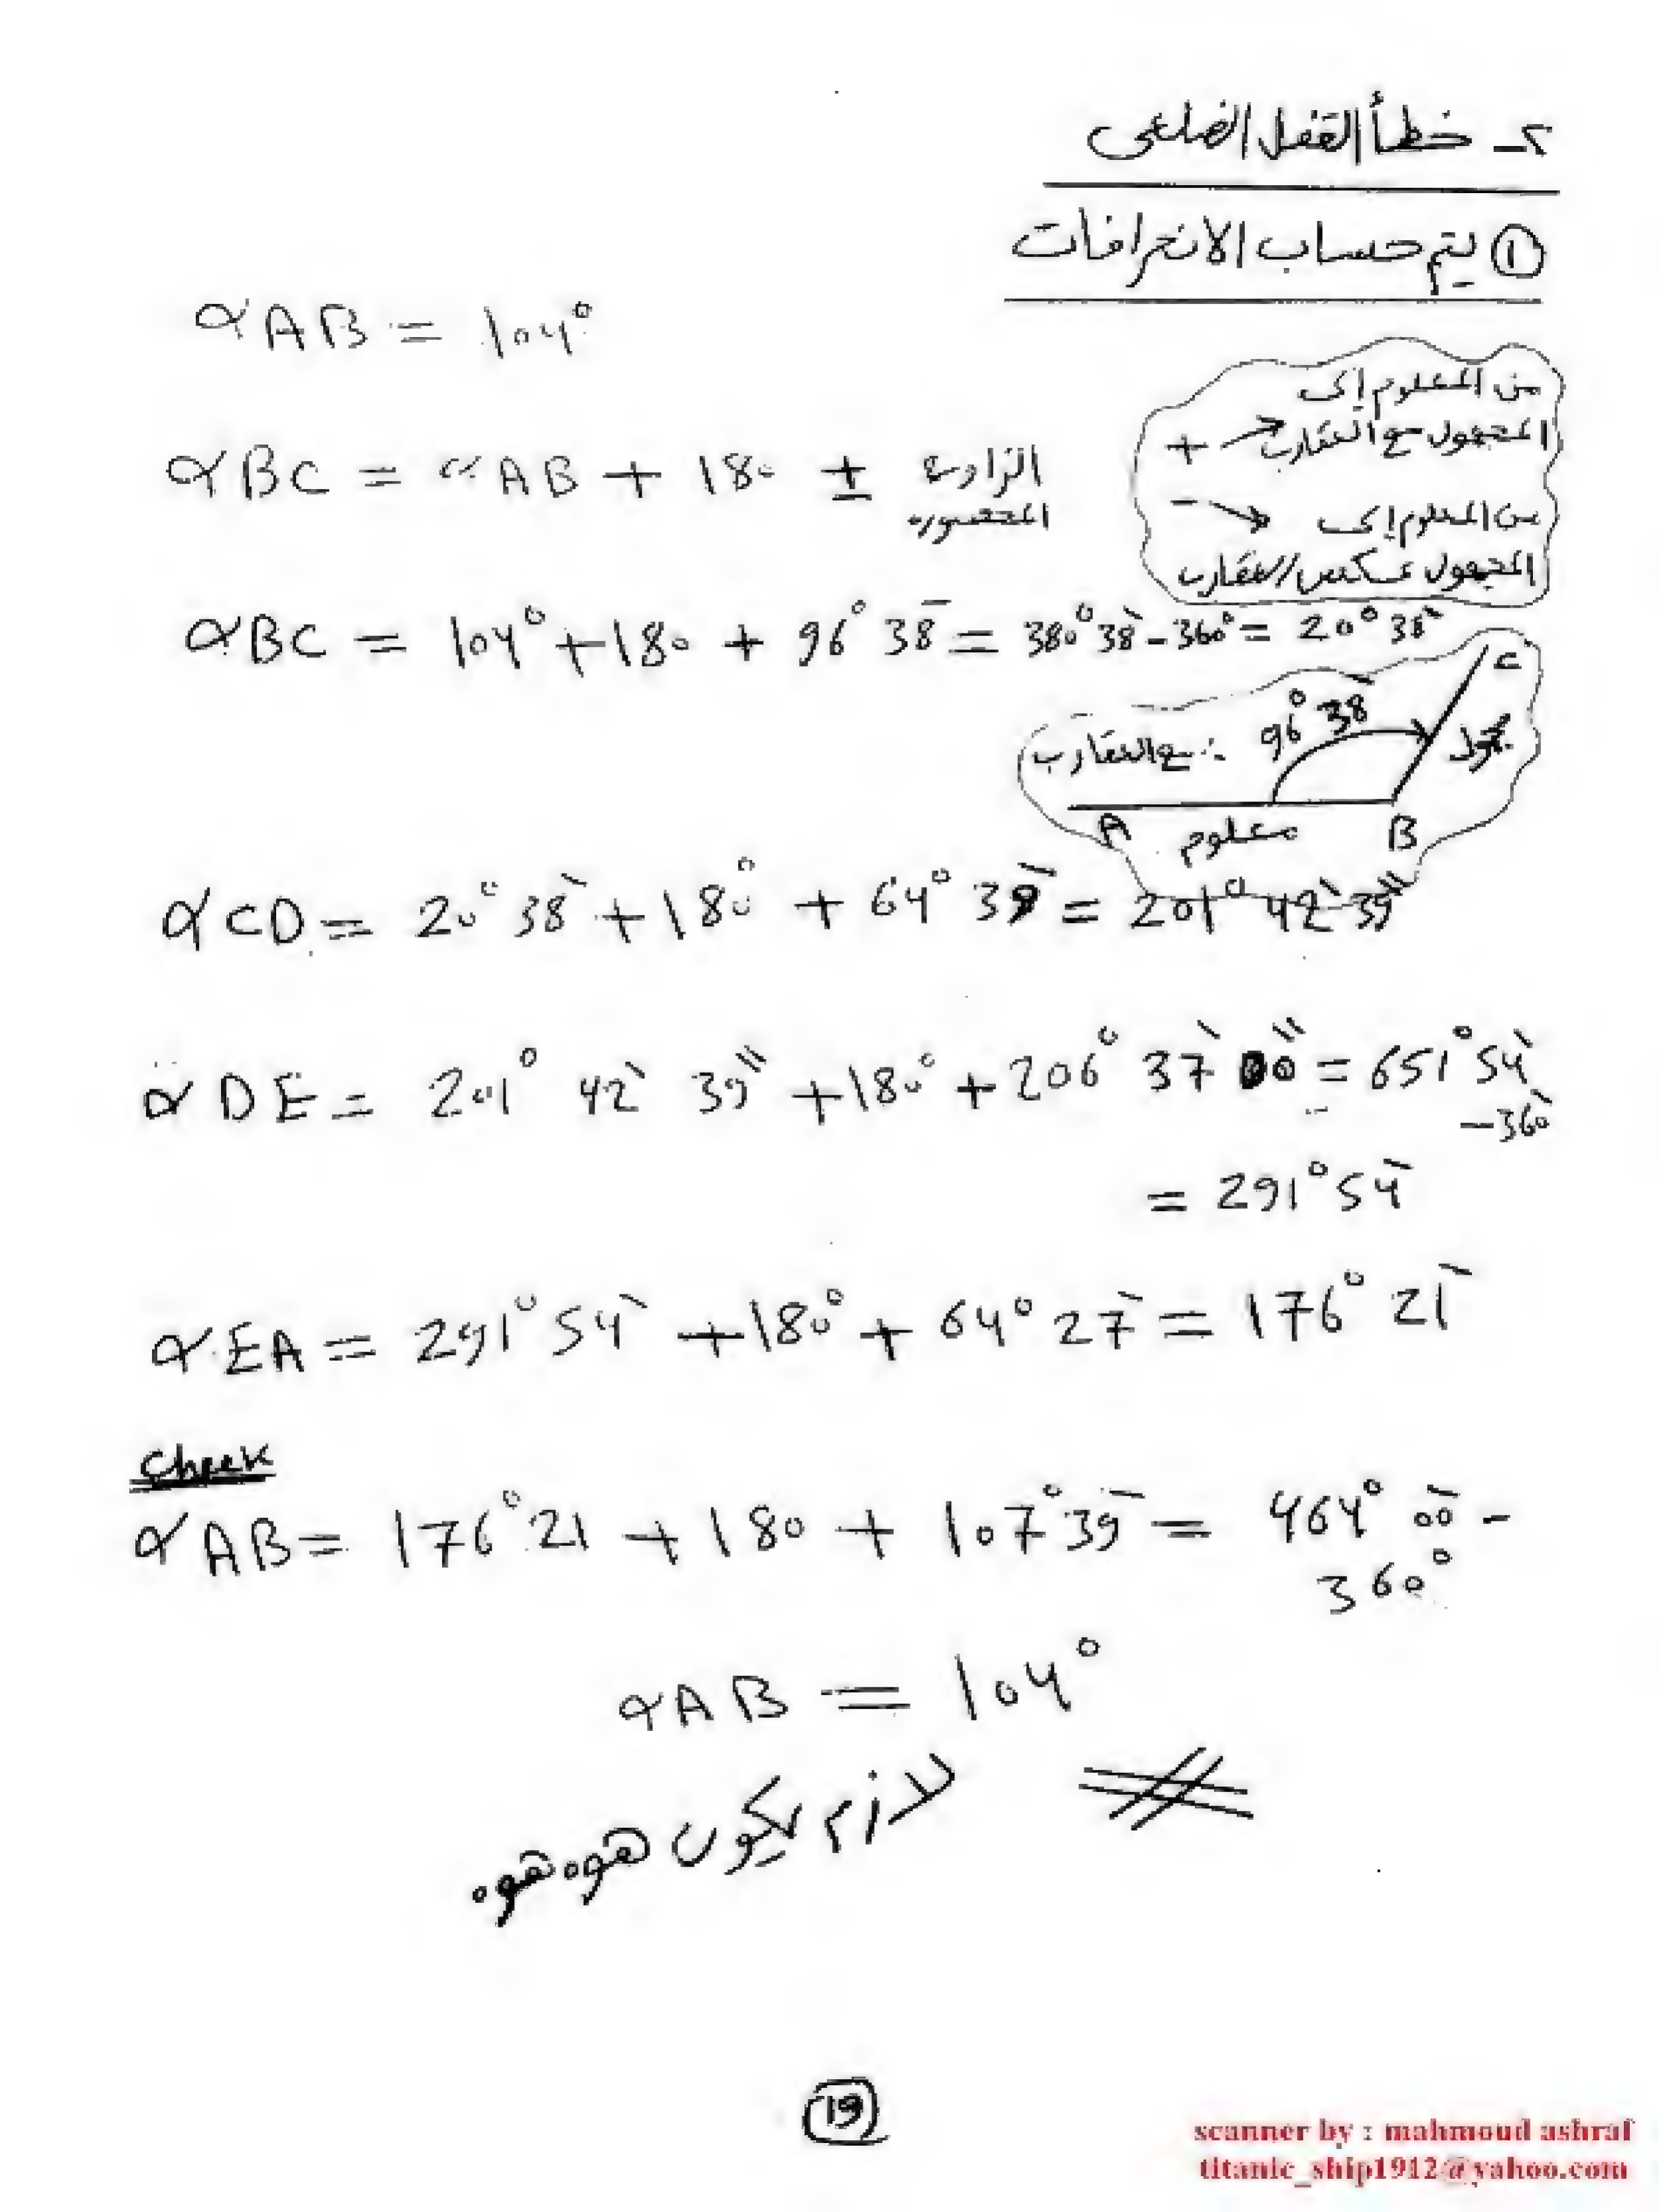 ٢- خطأ القفل الضلعى
① يتم حساب الانحرافات
αAB = 104°
من المعلوم إلى
المجهول مع العقارب → +
من المعلوم إلى → -
المجهول عكس العقارب
αBC = αAB + 180 ± الزاوية
المحصورة
αBC = 104° + 180 + 96° 38' = 380° 38' - 360° = 20° 38'
C
96° 38'
∴ مع العقارب
مجهول
A معلوم B
αCD = 20° 38' + 180° + 64° 39' = 201° 42' 39"
αDE = 201° 42' 39" + 180° + 206° 37' 00" = 651° 54'
-360'
= 291° 54'
αEA = 291° 54' + 180° + 64° 27' = 176° 21'
Check
αAB = 176° 21 + 180 + 107° 39' = 464° 00' -
360°
αAB = 104°
لازم يكون هوه هوه
19
scanner by : mahmoud ashraf
titanic_ship1912@yahoo.com